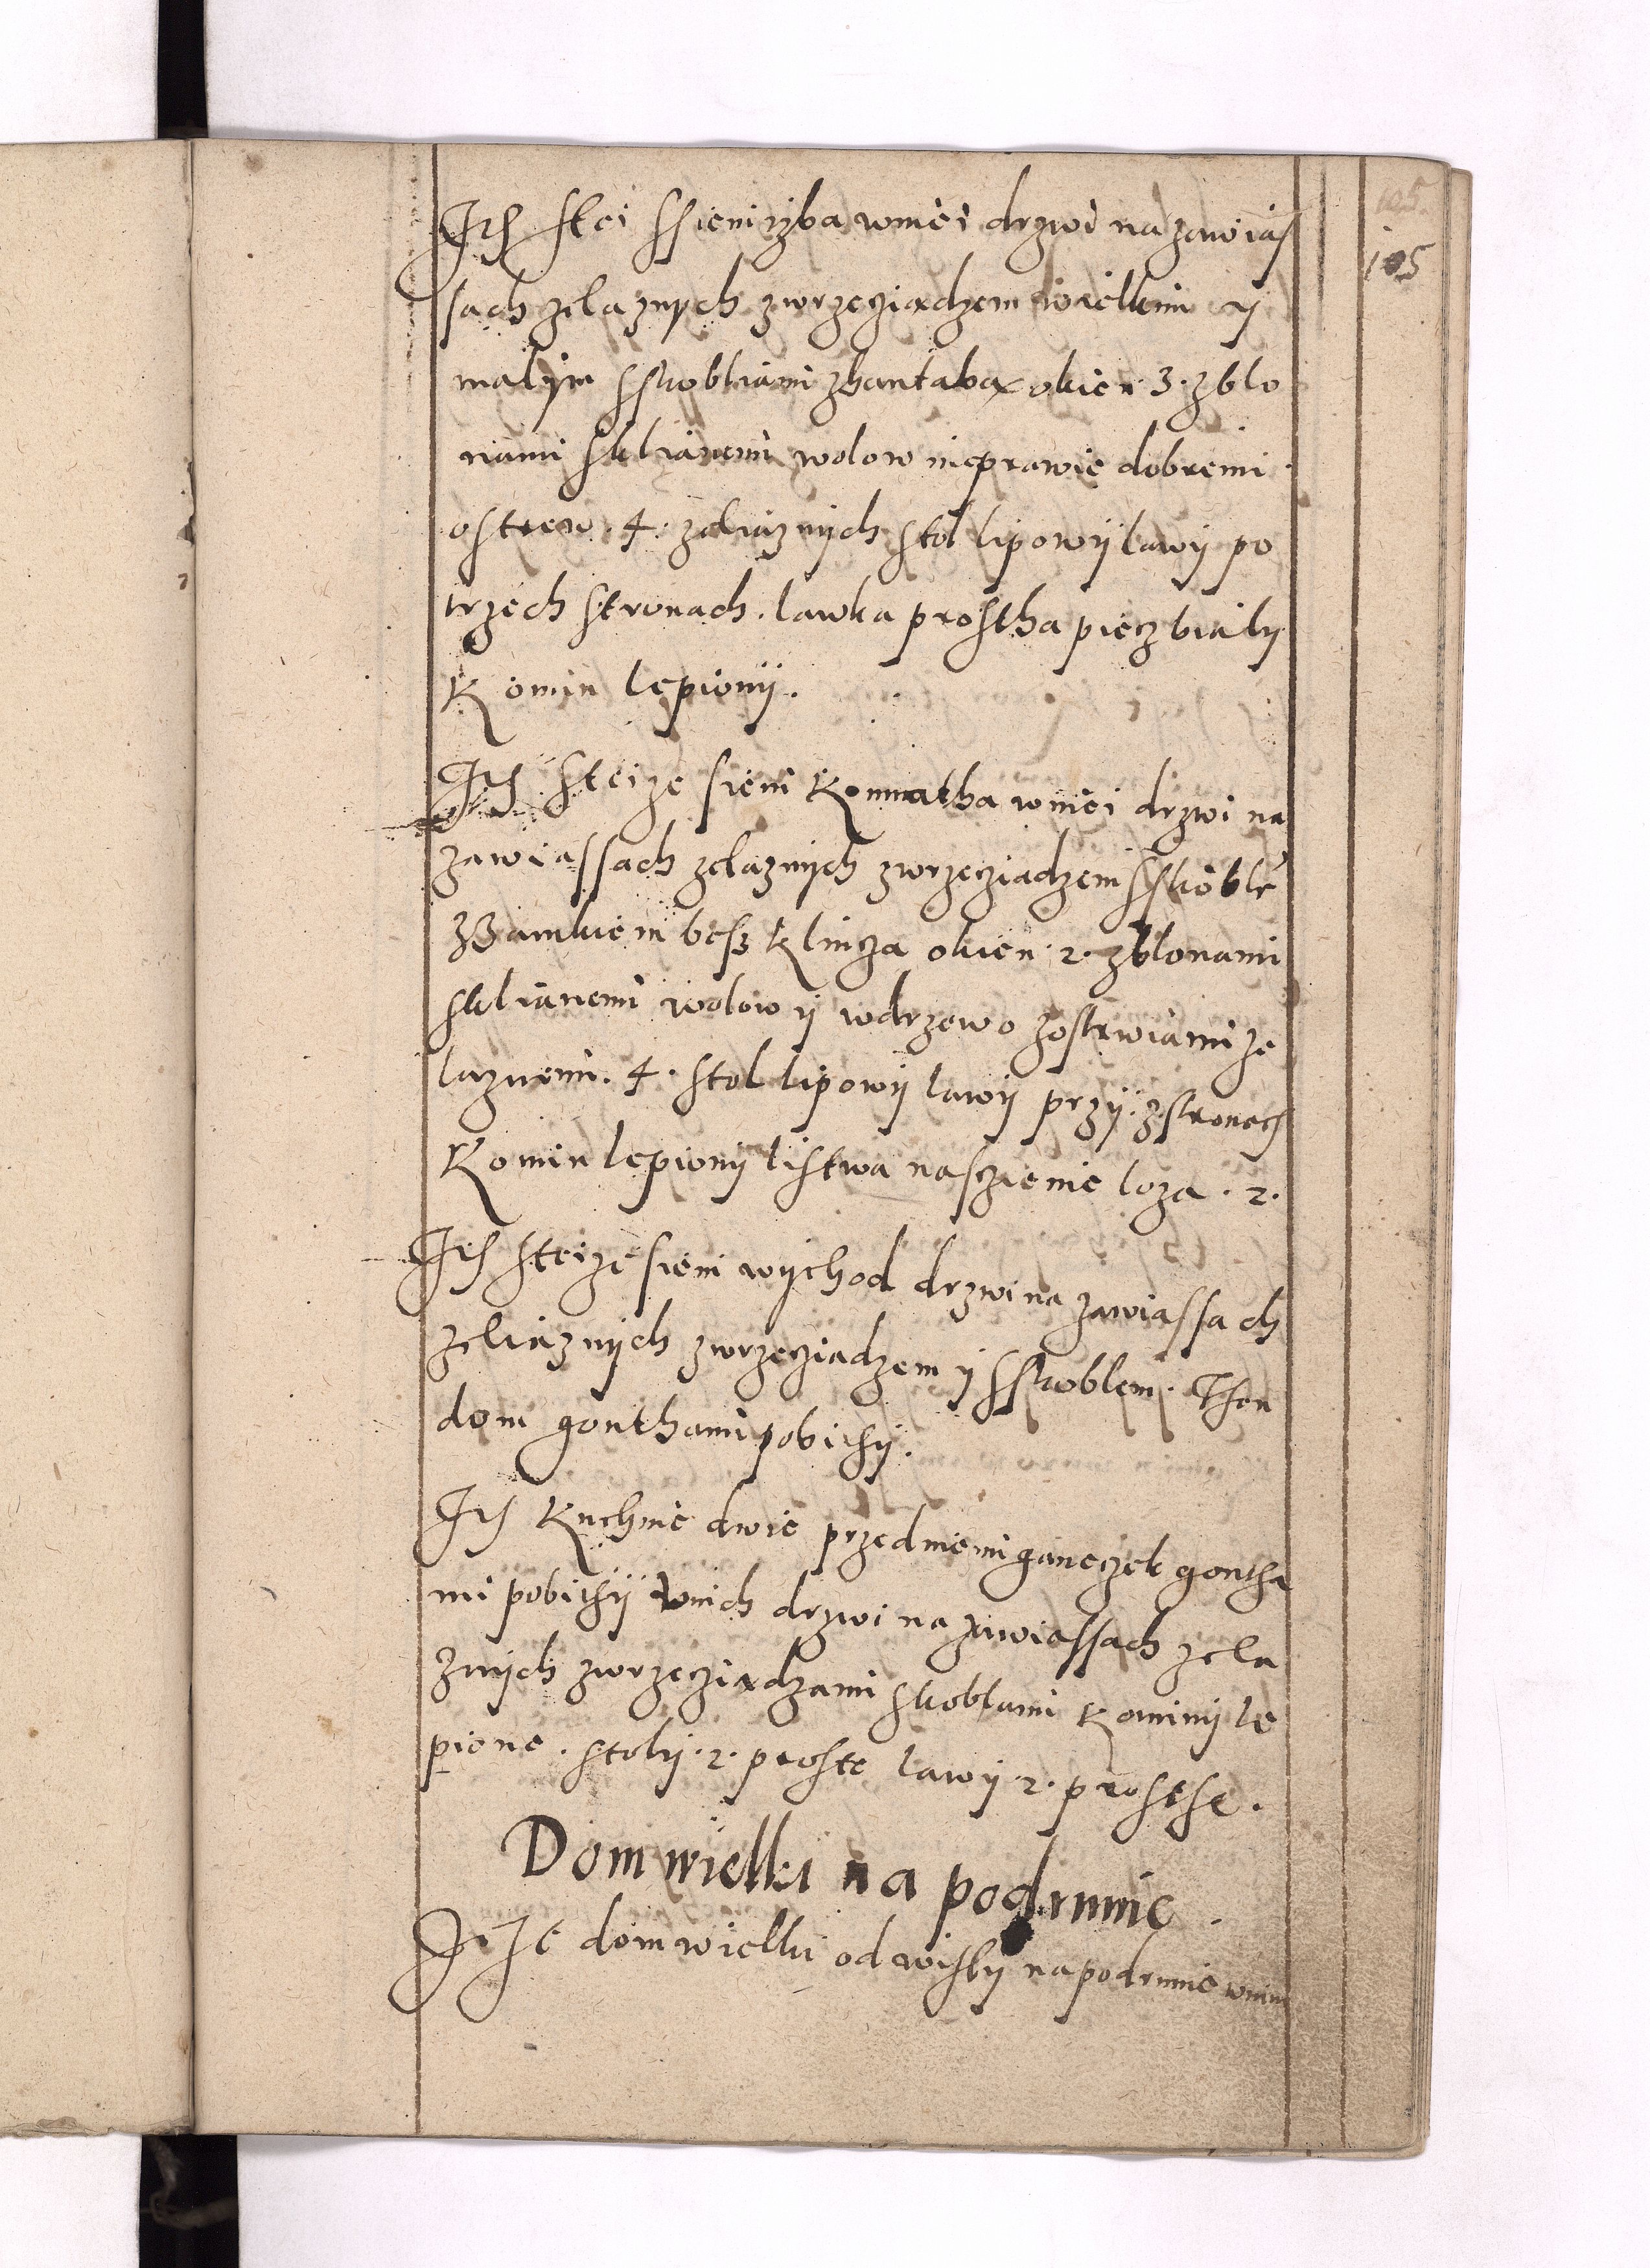 105
105
Its stei ssieni izba wniei drzwi na zawias
sach zelaznych zwrzecziadzem wielkim y
malym sskobliami zhantaba okien 3. zblo
nami sklianemi wolow nieprawie dobremi
ostrew. 4. zeliaznych stol lipowÿ lawÿ po
trzech stronach. lawka prostha piecz bialy
Komin lepionÿ.
Its steize sieni Kommatha wniei drzwi na
zawiassach zelaznych zwrzecziadzem sskoblē
Zzamkiem besz Klucza okien. 2. zblonami
sklianemi wolow ÿ wdrzewo zostrwiami ze
laznemi. 4. stol lipowÿ lawÿ przÿ. 2. stronach
Komin lepionÿ listwa nasczienie loza. 2.
Its steize sieni wychod drzwi na zawiassach
zeliaznych zwrzecziadzem ÿ sskoblem. Then
dom gonthami pobithÿ.
Its Kuchnie dwie przedniemi ganeczek gontha
mi pobithÿ wnich drzwi na zawiassach zela
znych zwrzecziadzami skoblami Kominÿ le
pione. stolÿ. 2. proste lawÿ 2. prosthe.
Dom wielki na podrumie.
Ite dom wielki od wislÿ na podrumie wnim